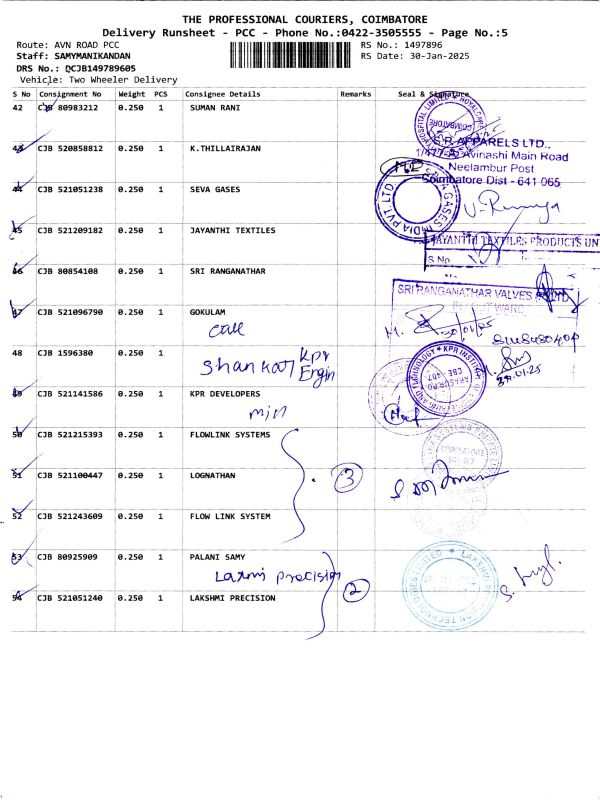 THE PROFESSIONAL COURIERS, COIMBATORE
Delivery Runsheet - PCC - Phone No.:0422-3505555 - Page No.:5
Route: AVN ROAD PCC
RS No.: 1497896
Staff: SAMYMANIKANDAN
RS Date: 30-Jan-2025
DRS No.: DCJB149789605
Vehicle: Two Wheeler Delivery
S No Consignment No Weight PCS Consignee Details Remarks Seal & Signature
42 CJB 80983212 0.250 1 SUMAN RANI
COIMBATORE
43 CJB 520858812 0.250 1 K.THILLAIRAJAN
APPARELS LTD.,
Avinashi Main Road
Neelambur Post
Coimbatore Dist - 641 065
44 CJB 521051238 0.250 1 SEVA GASES
GASES INDIA PVT. LTD
45 CJB 521209182 0.250 1 JAYANTHI TEXTILES
JAYANTHI TEXTILES PRODUCTS UN
S.No
46 CJB 80854108 0.250 1 SRI RANGANATHAR
SRI RANGANATHAR VALVES
47 CJB 521096790 0.250 1 GOKULAM
call
48 CJB 1596380 0.250 1
Shankar Kpr
Engin
49 CJB 521141586 0.250 1 KPR DEVELOPERS
50 CJB 521215393 0.250 1 FLOWLINK SYSTEMS
51 CJB 521100447 0.250 1 LOGNATHAN
3
52 CJB 521243609 0.250 1 FLOW LINK SYSTEM
53 CJB 80925909 0.250 1 PALANI SAMY
Laxmi precision
2
54 CJB 521051240 0.250 1 LAKSHMI PRECISION